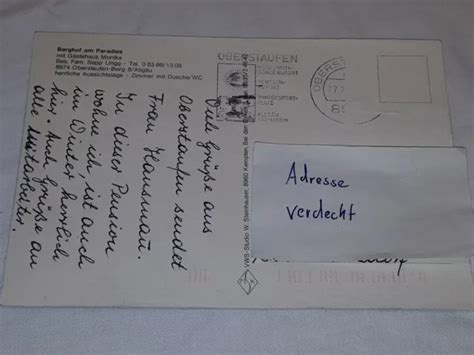 Berghof am Paradies
mit Gästehaus Monika
Bes. Fam. Sepp Lingg - Tel. 0 83 86 / 13 09
8974 Oberstaufen-Berg 8/Allgäu
herrliche Aussichtslage - Zimmer mit Dusche/WC
Viele Grüße aus
Oberstaufen sendet
Frau Hausmau.
In dieser Pension
wohne ich, ist auch
im Winter herrlich
hier. Auch Grüße an
alle Mitarbeiter.
VWS-Studio W. Steinhauser, 8960 Kempten,
OBERSTAUFEN
OBERST
Adresse
verdeckt